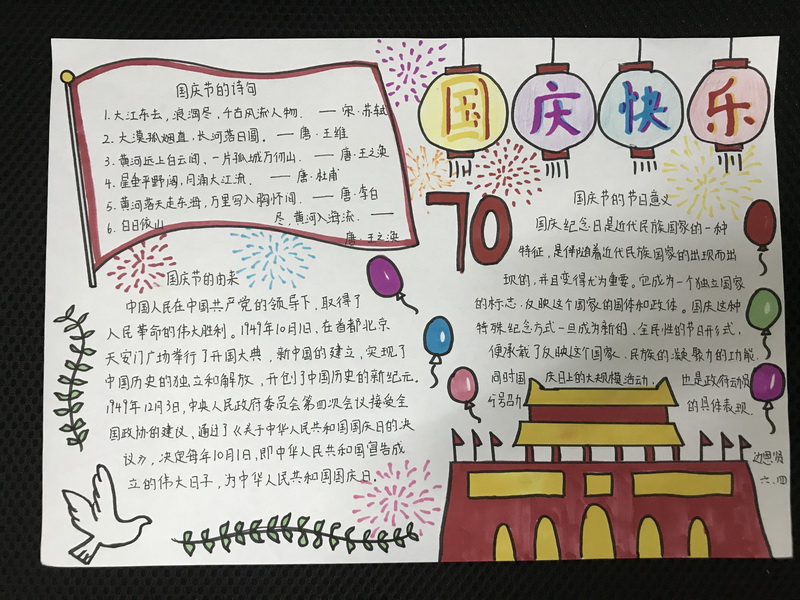 国庆节的诗句
1.大江东去,浪淘尽,千古风流人物. — 宋·苏轼
2.大漠孤烟直,长河落日圆。 — 唐·王维
3.黄河远上白云间,一片孤城万仞山. — 唐·王之涣
4.星垂平野阔,月涌大江流. — 唐·杜甫
5.黄河落天走东海,万里写入胸怀间. — 唐·李白
6.白日依山尽,黄河入海流. —
唐·王之涣
国庆快乐
70
国庆节的由来
中国人民在中国共产党的领导下,取得了
人民革命的伟大胜利。1949年10月1日,在首都北京
天安门广场举行了开国大典.新中国的建立,实现了
中国历史的独立和解放,开创了中国历史的新纪元.
1949年12月3日,中央人民政府委员会第四次会议接受全
国政协的建议,通过了《关于中华人民共和国国庆日的决
议》,决定每年10月1日,即中华人民共和国宣告成
立的伟大日子,为中华人民共和国国庆日.
国庆节的节日意义
国庆纪念日是近代民族国家的一种
特征,是伴随着近代民族国家的出现而出
现的,并且变得尤为重要。它成为一个独立国家
的标志,反映这个国家的国体和政体。国庆这种
特殊纪念方式一旦成为新的、全民性的节日形式,
便承载了反映这个国家、民族的凝聚力的功能.
同时国庆日上的大规模活动,也是政府动员
与号召力的具体表现.
边思贤
六.四